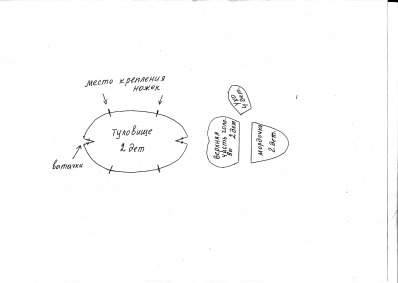 место крепления
ножек
Туловище
2 дет
вытачки
ухо
4 дет
верхняя
часть голо
вы 2 дет
мордочка
2 дет.